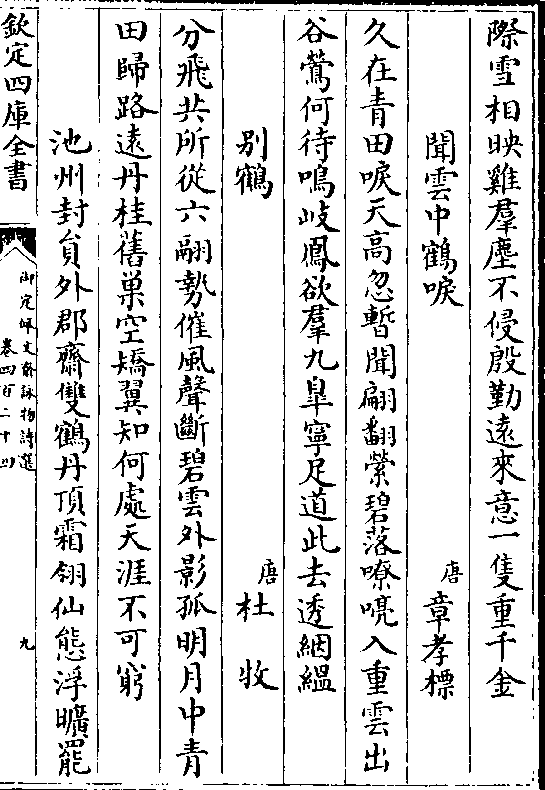 際雪相映雞羣塵不侵殷勤遠來意一隻重千金
聞雲中鶴唳 唐 章孝標
久在青田唳天高忽暫聞翩翻縈碧落嘹喨入重雲出
谷鶯何待鳴岐鳳欲羣九臯寧足道此去透絪緼
别鶴 唐 杜牧
分飛共所從六翮勢催風聲斷碧雲外影孤明月中青
田歸路遠丹桂舊巢空矯翼知何處天涯不可窮
池州封員外郡齋雙鶴丹頂霜翎仙態浮曠罷
欽定四庫全書
御定佩文齋詠物詩選
卷四百二十四
九